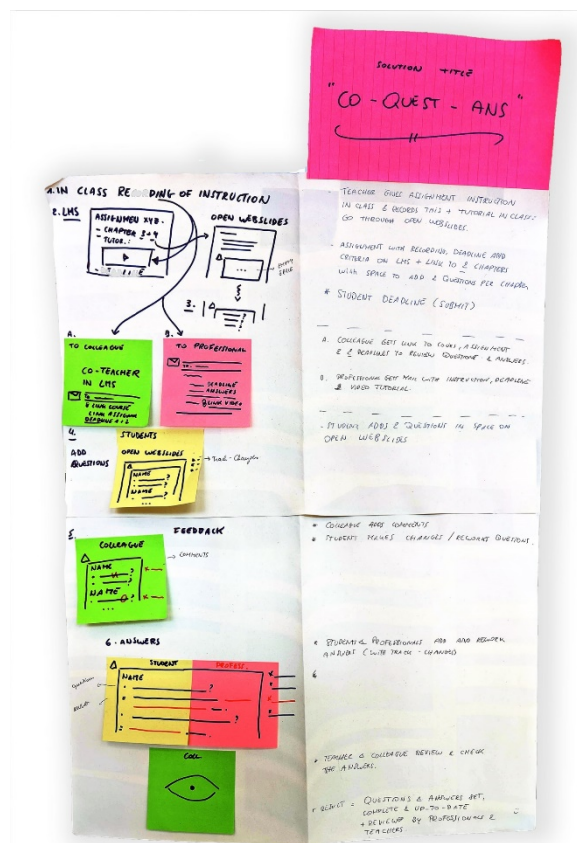 SOLUTION TITLE
"CO-QUEST-ANS"
1. IN CLASS RECORDING OF INSTRUCTION
2. LMS
ASSIGNMEN XYZ.
- CHAPTER 3+4
TUTOR.:
OPEN WEBSLIDES
EMPTY
SPACE
3.
A.
TO COLLEAGUE
CO-TEACHER
IN LMS
LINK COURSE
LINK ASSIGNM
DEADLINE 1+2
B.
TO PROFESSIONAL
DEADLINE
ANSWERS
& LINK VIDEO
4.
ADD
QUESTIONS
STUDENTS
OPEN WEBSLIDES
NAME
NAME
→ Track-Changes
5.
FEEDBACK
COLLEAGUE
NAME
NAME
→ COMMENTS
6. ANSWERS
STUDENT
PROFESS.
NAME
Question
Answer
COLL.
- TEACHER GIVES ASSIGNMENT INSTRUCTION
IN CLASS & RECORDS THIS + TUTORIAL IN CLASS:
GO THROUGH OPEN WEBSLIDES.
- ASSIGNMENT WITH RECORDING, DEADLINE AND
CRITERIA ON LMS + LINK TO 2 CHAPTERS
WITH SPACE TO ADD 2 QUESTIONS PER CHAPTER
* STUDENT DEADLINE (SUBMIT)
A. COLLEAGUE GETS LINK TO COURS, ASSIGNMENT
& 2 DEADLINES TO REVIEW QUESTIONS & ANSWERS.
B. PROFESSIONAL GETS MAIL WITH INSTRUCTION, DEADLINE
& VIDEO TUTORIAL.
- STUDENT ADDS 2 QUESTIONS IN SPACE ON
OPEN WEBSLIDES
* COLLEAGUE ADDS COMMENTS
* STUDENT MAKES CHANGES / REWORKS QUESTIONS.
* STUDENT & PROFESSIONALS ADD AND REWORK
ANSWERS (WITH TRACK-CHANGES)
6
* TEACHER & COLLEAGUE REVIEW & CHECK
THE ANSWERS.
* RESULT = QUESTIONS & ANSWERS SET,
COMPLETE & UP-TO-DATE
+ REVIEWED BY PROFESSIONALS &
TEACHERS